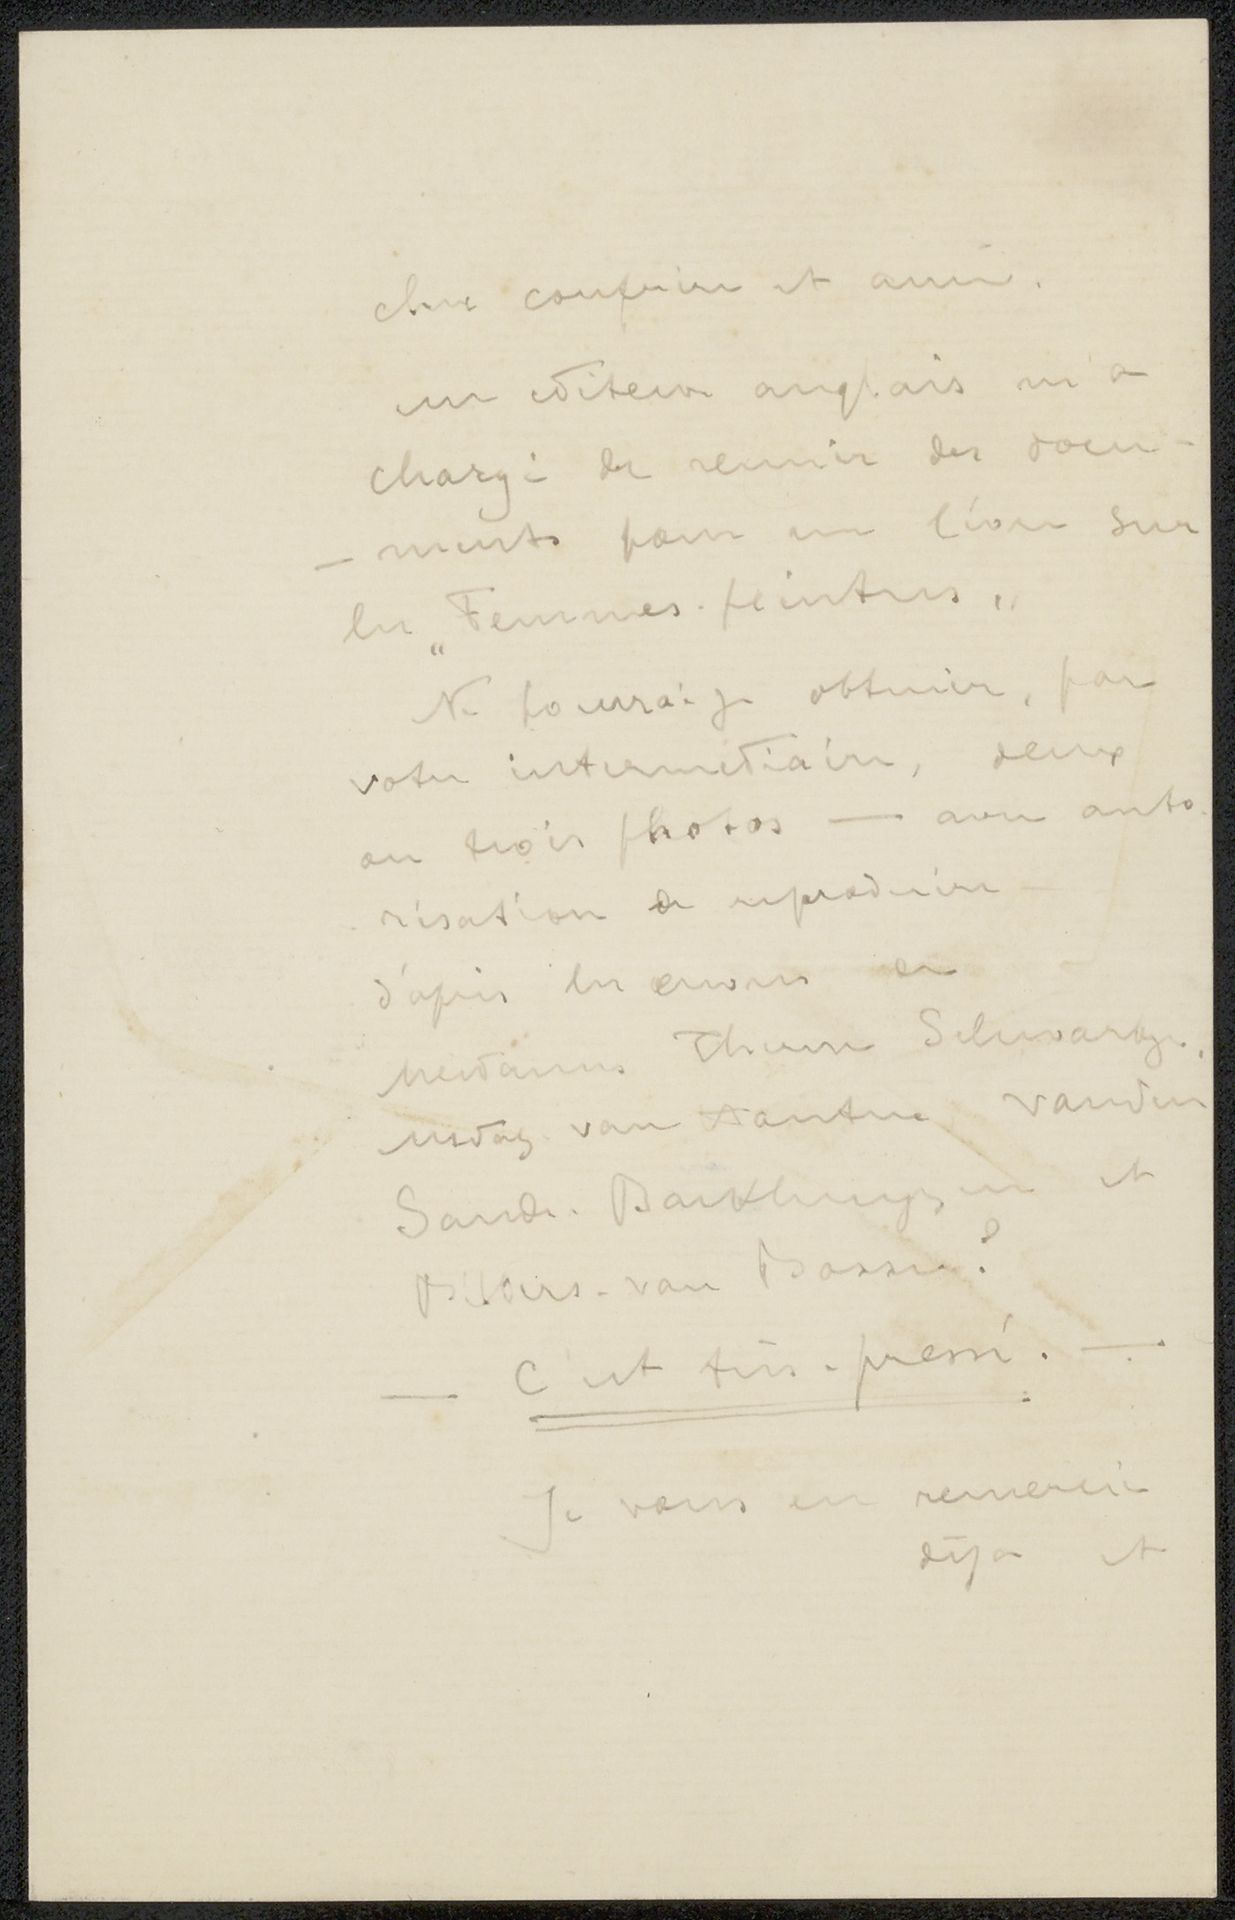 cher confrère et ami.
un éditeur anglais m'a
chargé de reunir des docu-
-ments pour un livre sur
les „Femmes-peintres„
Ne pourrai-je obtenir, par
votre intermédiaire, deux
ou trois photos — avec auto-
risation de reproduire —
d'après les œuvres de
Mesdames Thérèse Schwartze,
Mesdag-van Houten, Vanden
Sande-Backhuyzen et
Bilders-van Bosse?
— C'est très-pressé. —
Je vous en remercie
déja et